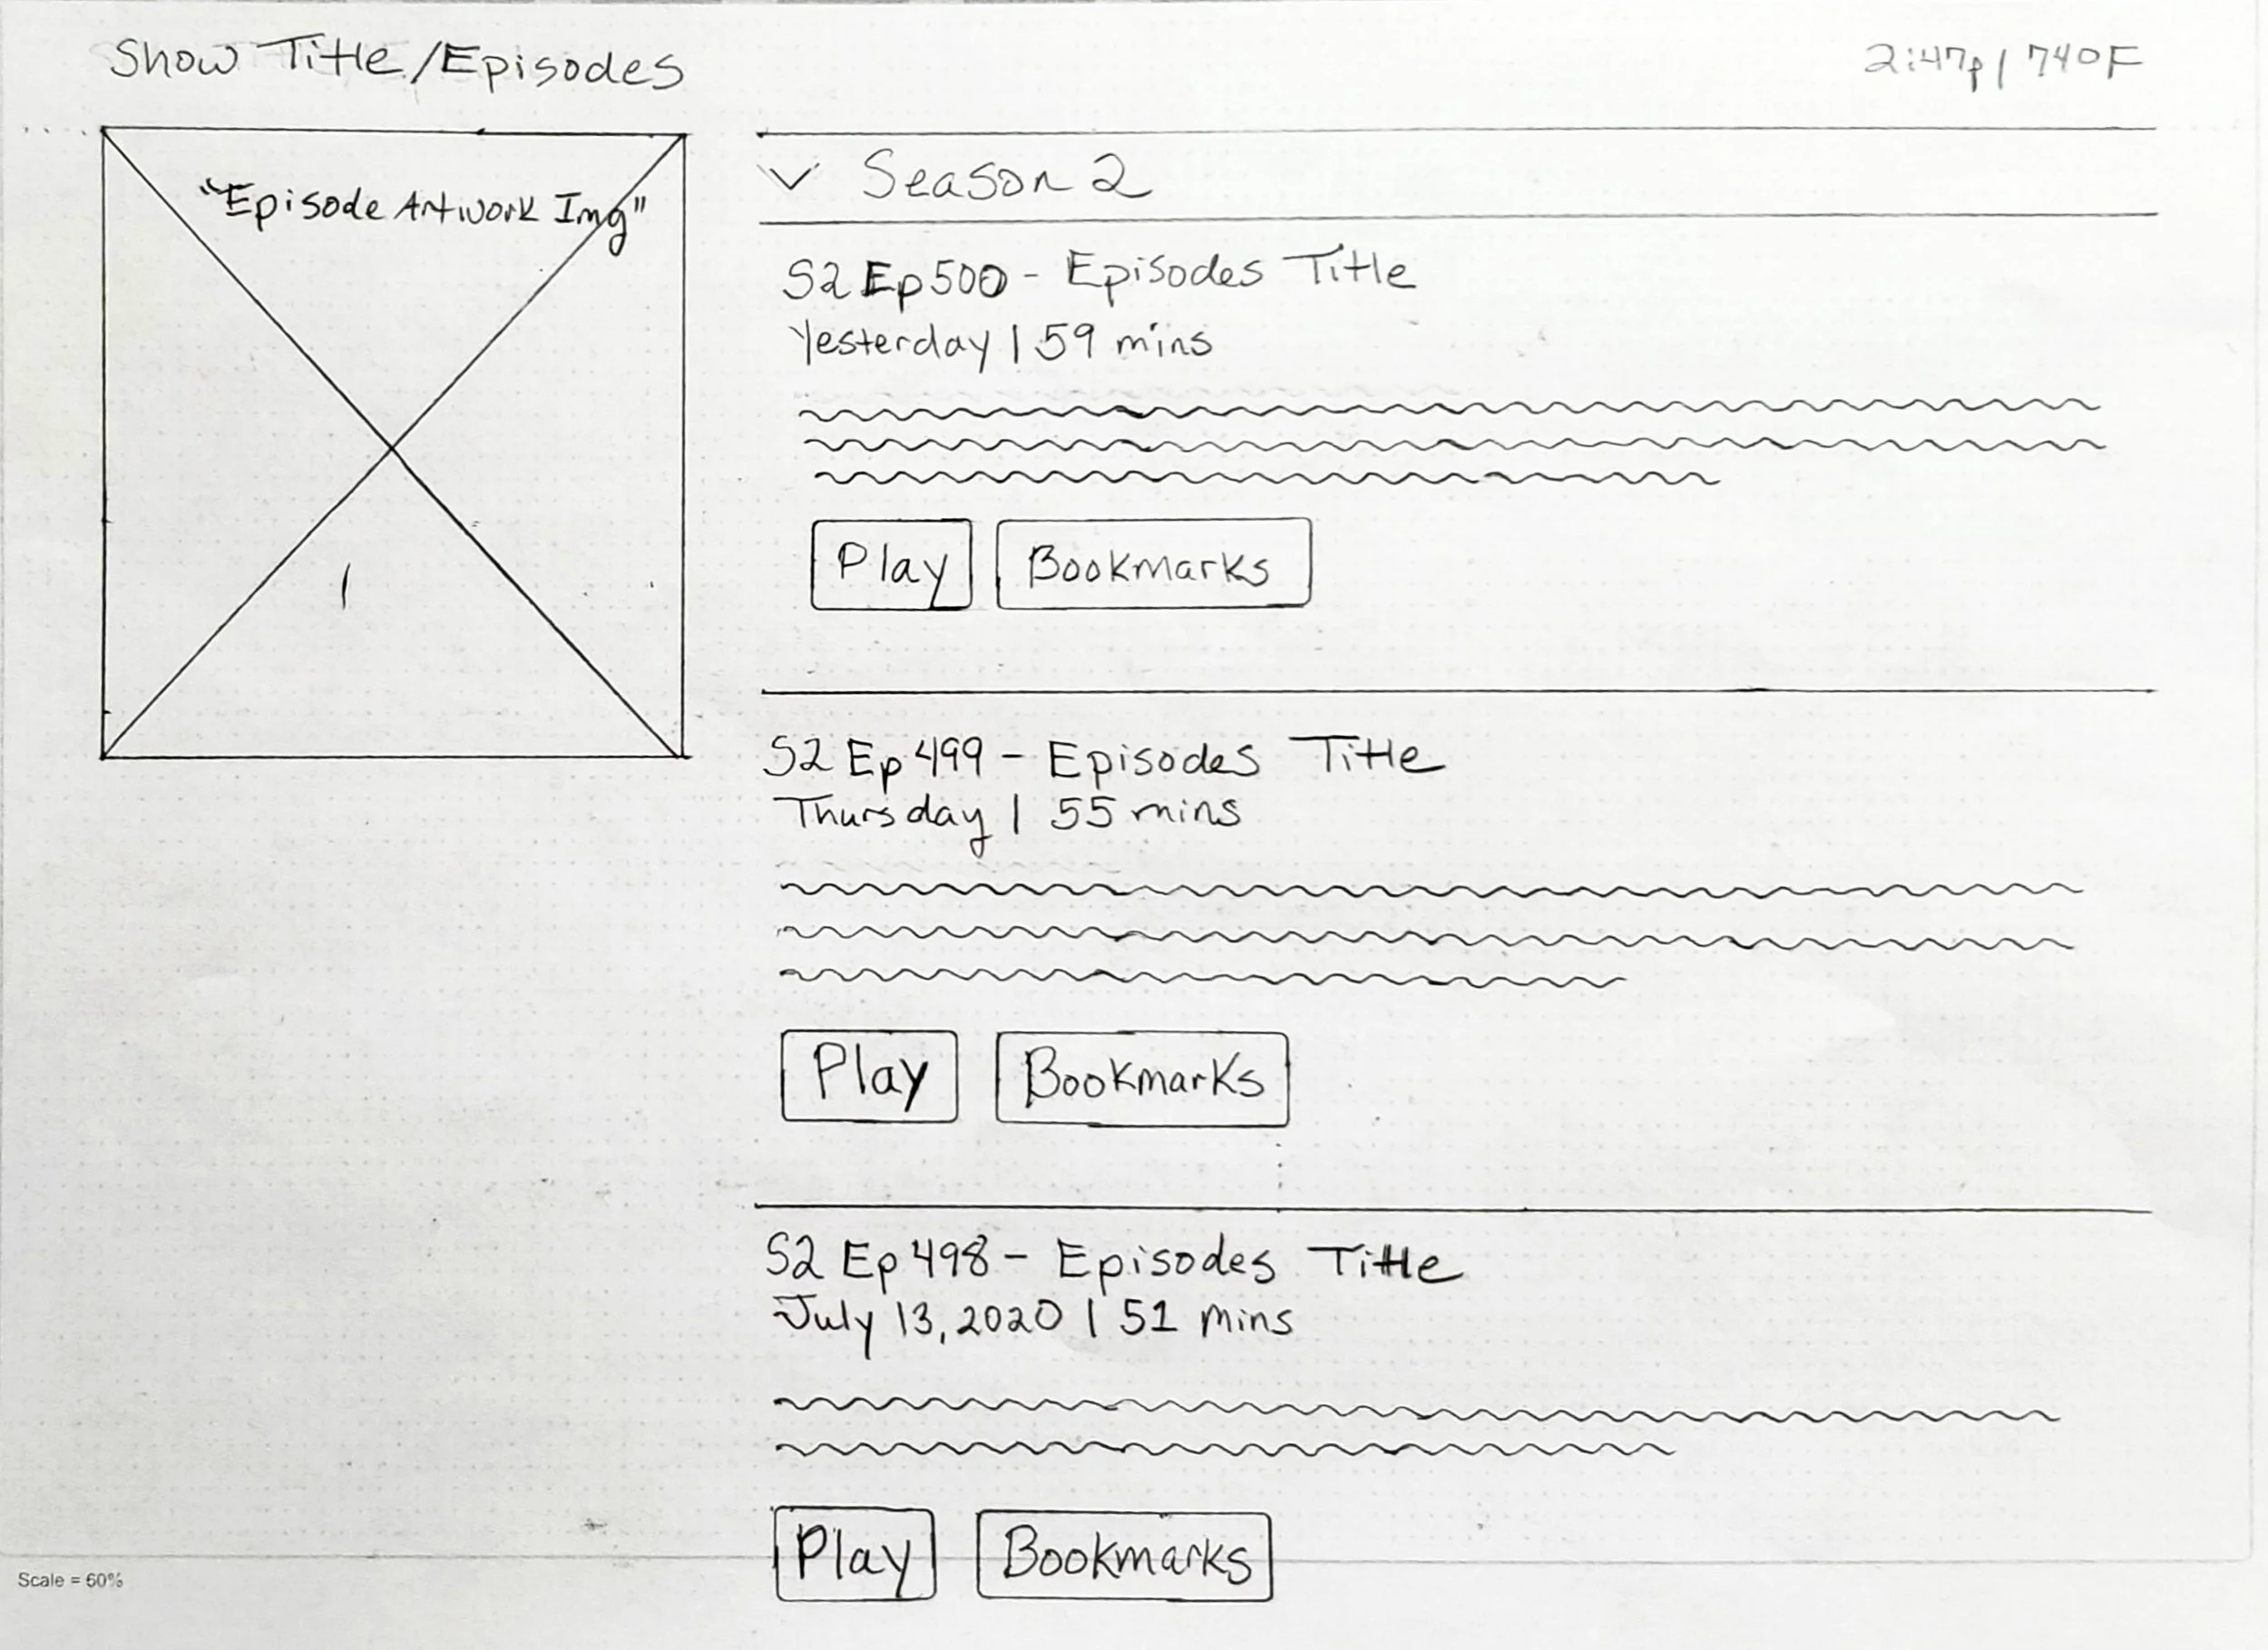 Show Title/Episodes
2:47p | 740F
"Episode Artwork Img"
Season 2
S2 Ep500 - Episodes Title
Yesterday | 59 mins
Play
Bookmarks
S2 Ep 499 - Episodes Title
Thursday | 55 mins
Play
Bookmarks
S2 Ep 498 - Episodes Title
July 13, 2020 | 51 mins
Play
Bookmarks
Scale = 60%